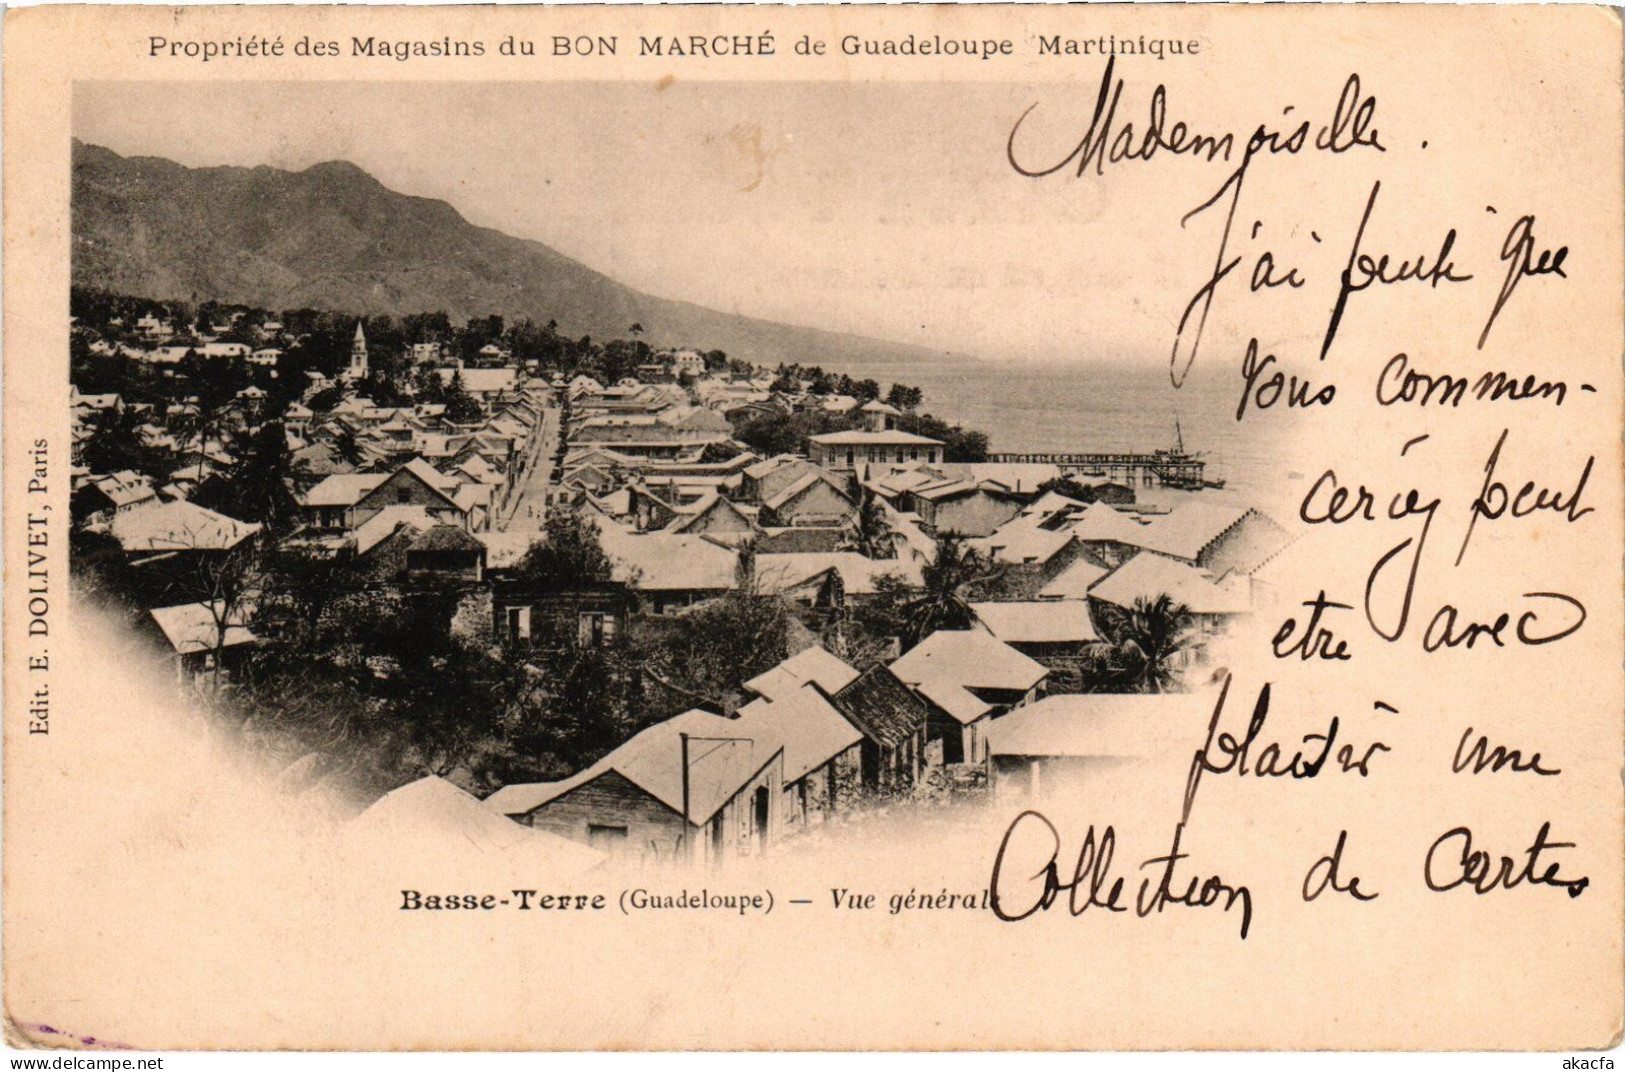 Propriété des Magasins du BON MARCHÉ de Guadeloupe Martinique
Mademoiselle.
J'ai pensé que
Vous commen-
ceriez peut
etre avec
plaisir une
Collection de Cartes
Edit. E. DOLIVET, Paris
Basse-Terre (Guadeloupe) — Vue générale
akacfa